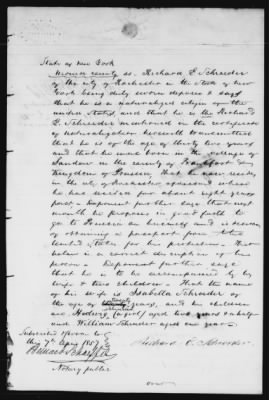 State of New York
Monroe County ss. Richard E. Schroeder
of the city of Rochester in the state of New
York being duly sworn deposes & says
that he is a naturalized citizen of the
United States and that he is the Richard
E. Schroeder mentioned in the certificate
of naturalization herewith transmitted
that he is of the age of thirty two years
and that he was born in the village of
Sandow in the county of Frankfort
Kingdom of Prussia. That he now resides
in the city of Rochester aforesaid where
he has resided for about eight years
past. Deponent further says that next
month he proposes in good faith to
go to Prussia on business and is desirous
of obtaining a passport from the
United States for his protection. That
below is a correct description of his
person. Deponent further says
that he is to be accompanied by his
wife & two children. That the name
of his wife is Isabella Schroeder of
the age of twenty years, and his children
are Hedwig (a girl) aged two years & a half
and William Schroeder aged one year.
Subscribed & sworn to before
this 7th day 1867
Richard E. Schroeder
Notary public